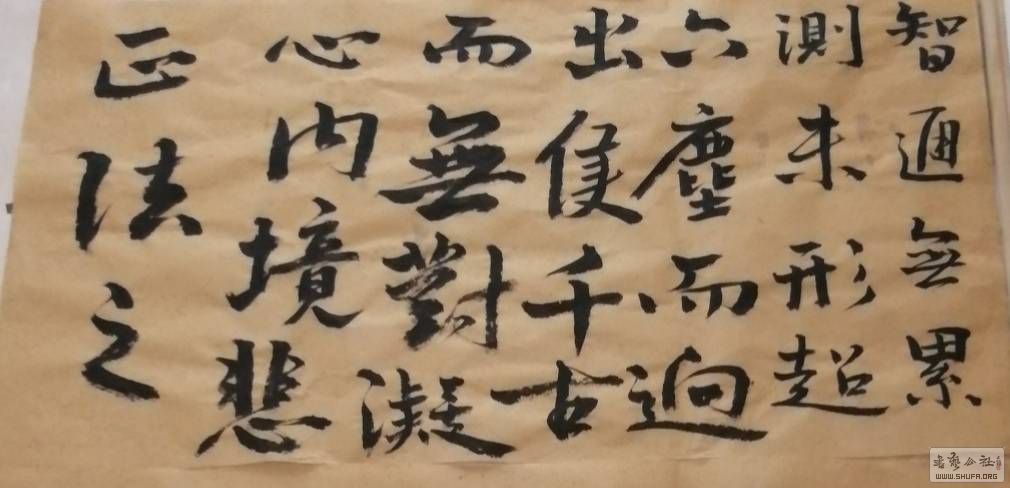 智通無累
測未形超
六塵而迥
出隻千古
而無對凝
心內境悲
正法之
書法公社
WWW.SHUFA.ORG